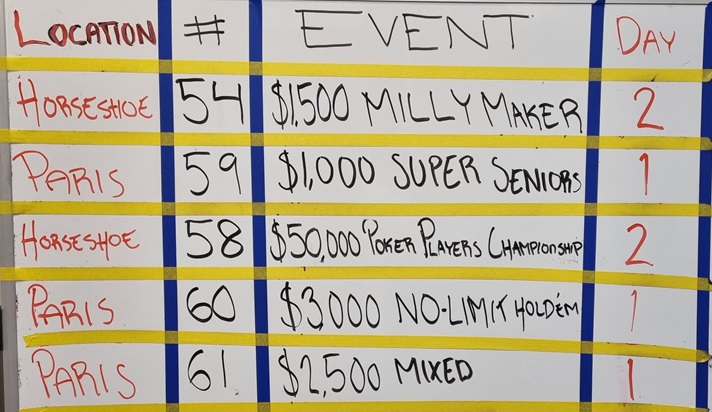 LOCATION # EVENT DAY
HORSESHOE 54 $1,500 MILLY MAKER 2
PARIS 59 $1,000 SUPER SENIORS 1
HORSESHOE 58 $50,000 POKER PLAYERS CHAMPIONSHIP 2
PARIS 60 $3000 NO-LIMIT HOLD'EM 1
PARIS 61 $2,500 MIXED 1